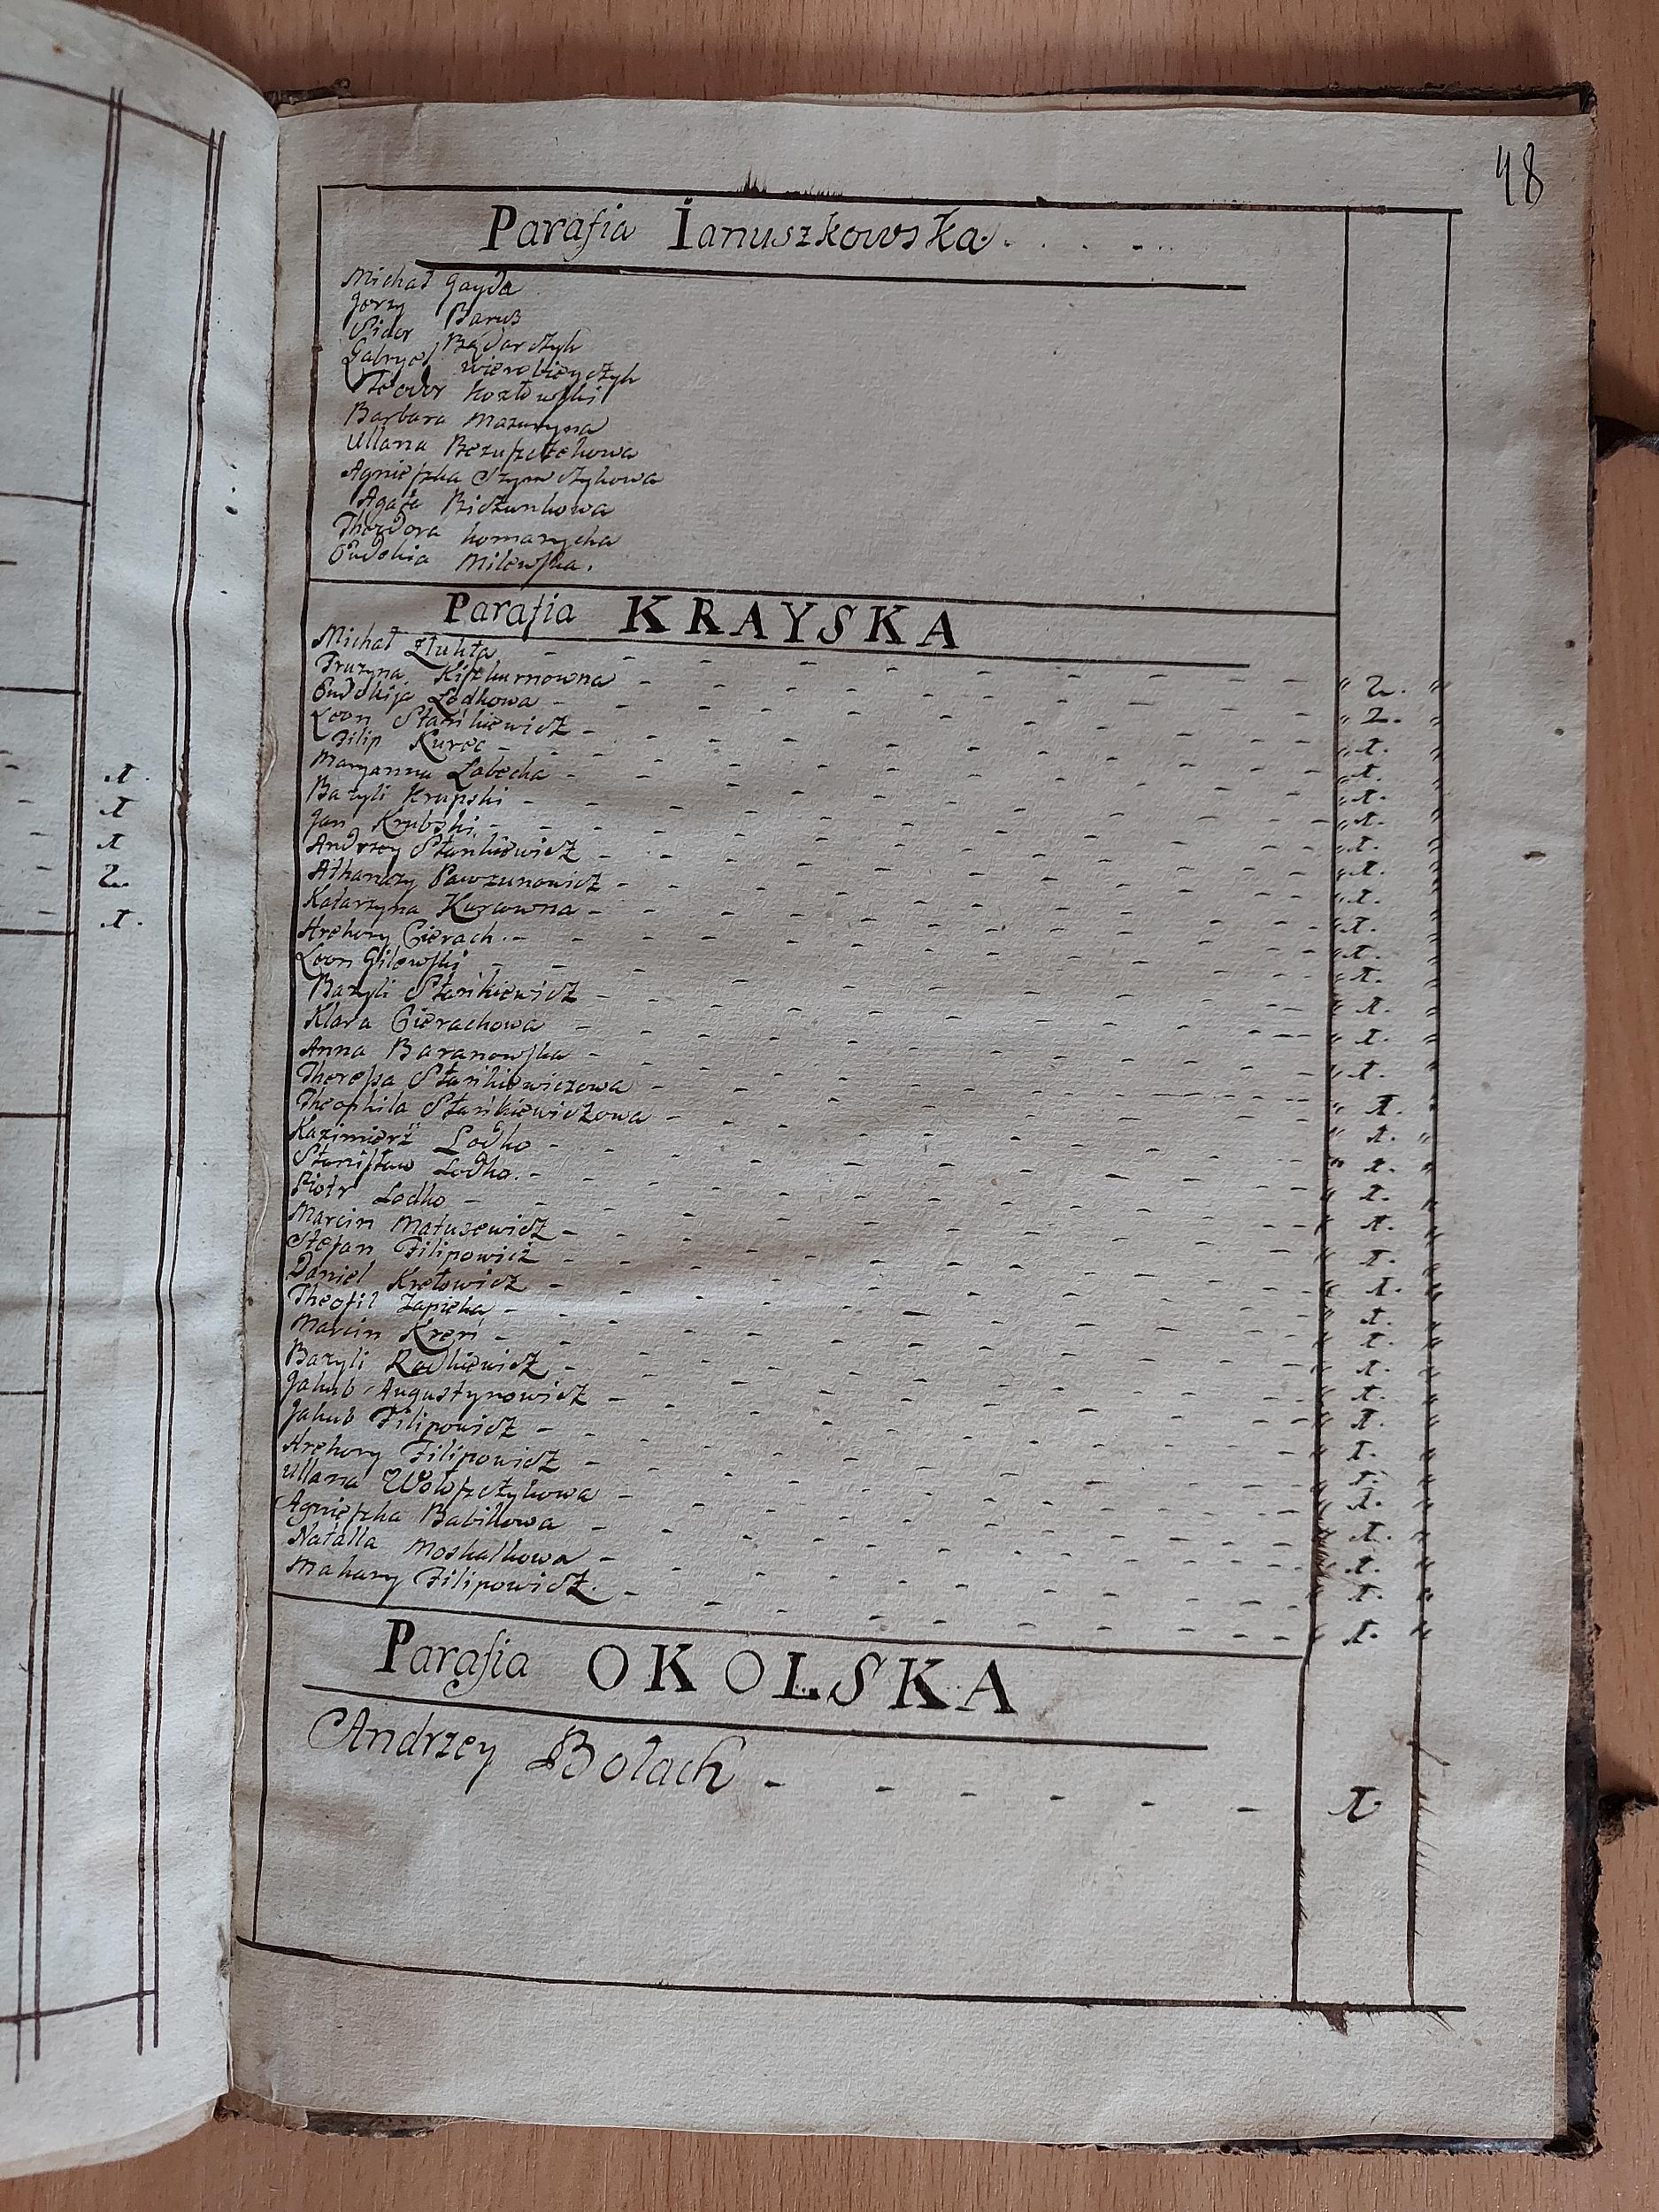 48
Parafia Ianuszkowska. . . . . . .
Michał Gayda
Jerzy Barus
Sidor Bedarczyk
Gabryel
Teodor Kozłowski
Barbara Mazuryna
Ullana
Agnieszka Szymczykowa
Agata Biczunkowa
Theodora Komarycha
Eudokia Milewska.
Parafia KRAYSKA
Michał Żłukta - - - - - " 2. "
Pruzyna - - - - - " 2. "
Eudokija Łodkowa - - - - - " 1. "
Leon Stankiewicz - - - - - " 1. "
Filip Kurec - - - - - " 1. "
Maryanna Labecka - - - - - " 1. "
Bazyli Krupski - - - - - " 1. "
Jan Krubski - - - - - " 1. "
Andrzey Stankiewicz - - - - - " 1. "
Athanazy Pawzunowicz - - - - - " 1. "
Katarzyna Kurcowna - - - - - " 1. "
Hrehory Gierach. - - - - - " 1. "
Leon Gilewski - - - - - " 1. "
Bazyli Stankiewicz - - - - - " 1. "
Klara Gierachowa - - - - - " 1. "
Anna Baranowska - - - - - " 1. "
Theressa Stankiewiczowa - - - - - " 1. "
Theophila Stankiewiczowa - - - - - " 1. "
Kazimierz Lodko - - - - - " 1. "
Stanisław Lodko. - - - - - " 1. "
Piotr Lodko - - - - - " 1. "
Marcin Matusewicz - - - - - " 1. "
Stefan Filipowicz - - - - - " 1. "
Daniel Kretowicz - - - - - " 1. "
Theofil Zapieka - - - - - " 1. "
Marcin Kreń - - - - - " 1. "
Bazyli Radkiewicz - - - - - " 1. "
Jakub Augustynowicz - - - - - " 1. "
Jakub Filipowicz - - - - - " 1. "
Hrehory Filipowicz - - - - - " 1. "
Ullana - - - - - " 1. "
Agnieszka Babikowa - - - - - " 1. "
Natalla Moskalkowa - - - - - " 1. "
Makary Filipowicz. - - - - - " 1. "
Parafia OKOLSKA
Andrzey Bolach - - - - - - 1.
1.
1
1
2.
1.